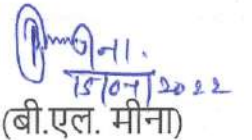 मीना.
15/07/2022
(बी.एल. मीना)